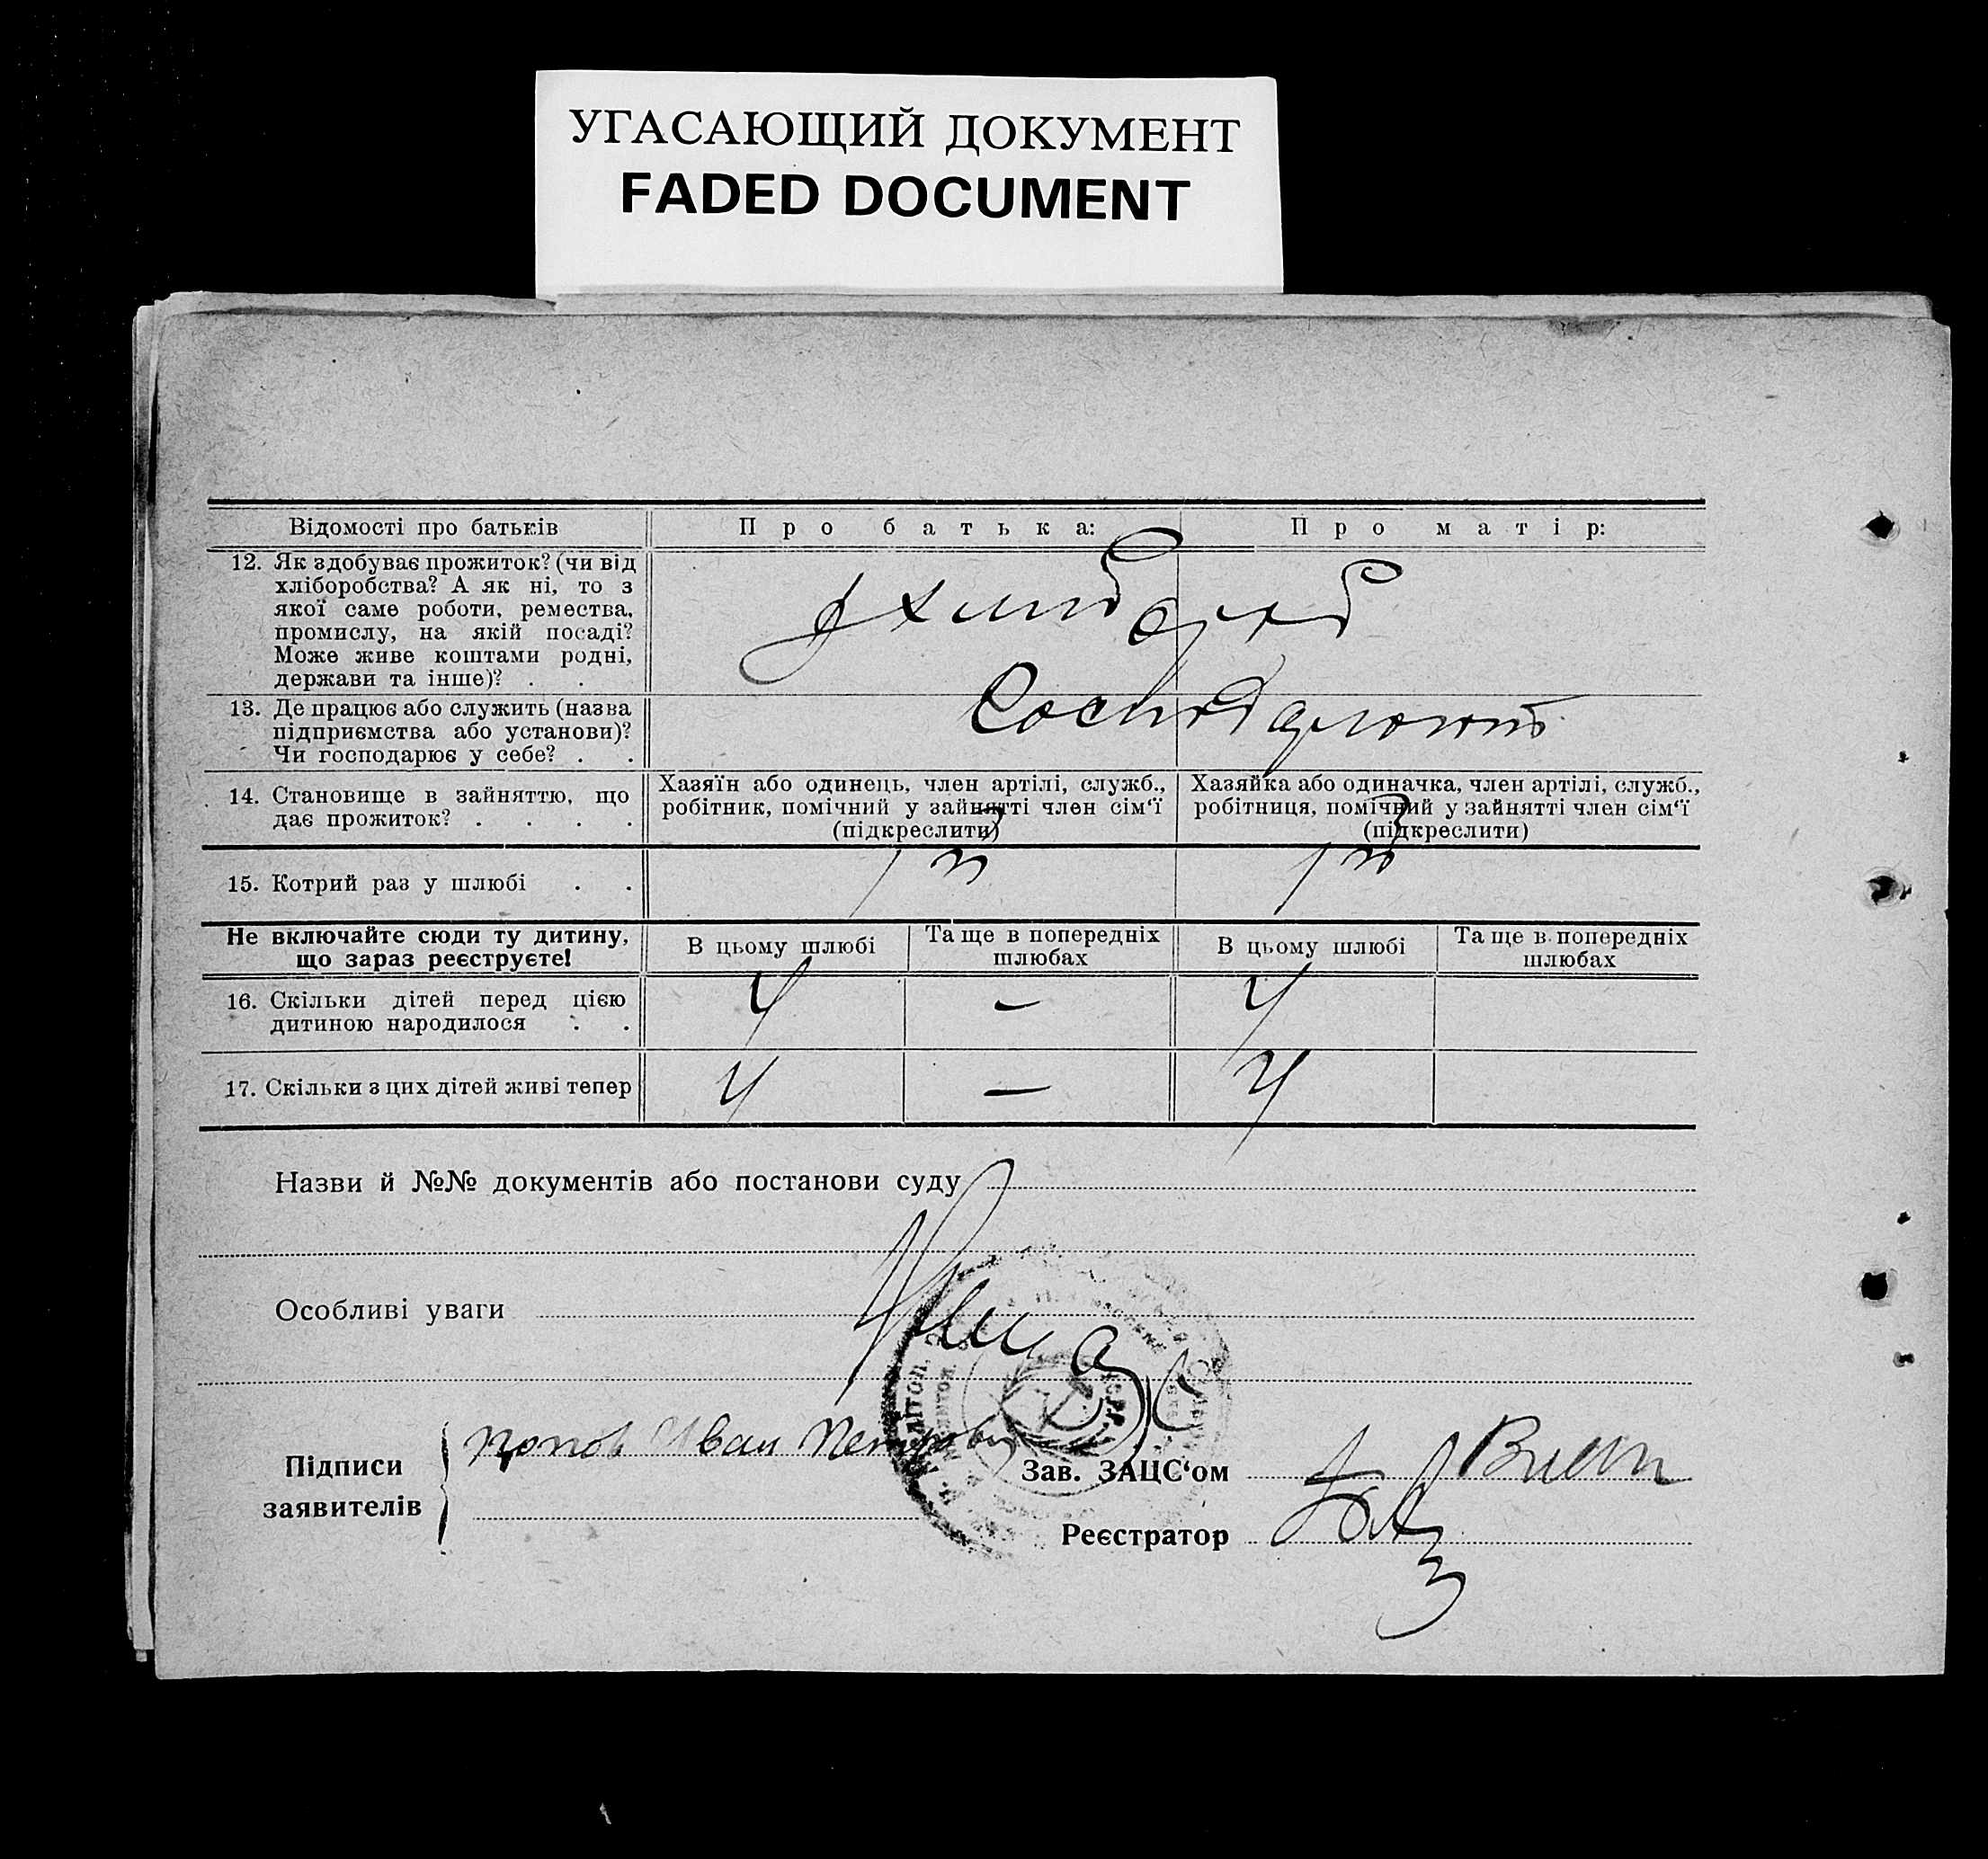 УГАСАЮЩИЙ ДОКУМЕНТ
FADED DOCUMENT
Відомості про батьків
Про батька:
Про матір:
12. Як здобуває прожиток? (чи від
хліборобства? А як ні, то з
якої саме роботи, ремества,
промислу, на якій посаді?
Може живе коштами родні,
держави та інше)? . .
13. Де працює або служить (назва
підприємства або установи)?
Чи господарює у себе? . .
14. Становище в зайняттю, що
дає прожиток? . . . .
Хазяїн або одинець, член артілі, служб.,
робітник, помічний у зайнятті член сім‘ї
(підкреслити)
Хазяйка або одиначка, член артілі, служб.,
робітниця, помічний у зайнятті член сім‘ї
(підкреслити)
15. Котрий раз у шлюбі . .
Не включайте сюди ту дитину,
що зараз реєструєте!
В цьому шлюбі
Та ще в попередніх
шлюбах
В цьому шлюбі
Та ще в попередніх
шлюбах
16. Скільки дітей перед цією
дитиною народилося . .
4 — 4
17. Скільки з цих дітей живі тепер
4 — 4
Назви й №№ документів або постанови суду
Особливі уваги
Підписи
заявителів
Попов Иван
Зав. ЗАЦС‘ом
Реєстратор